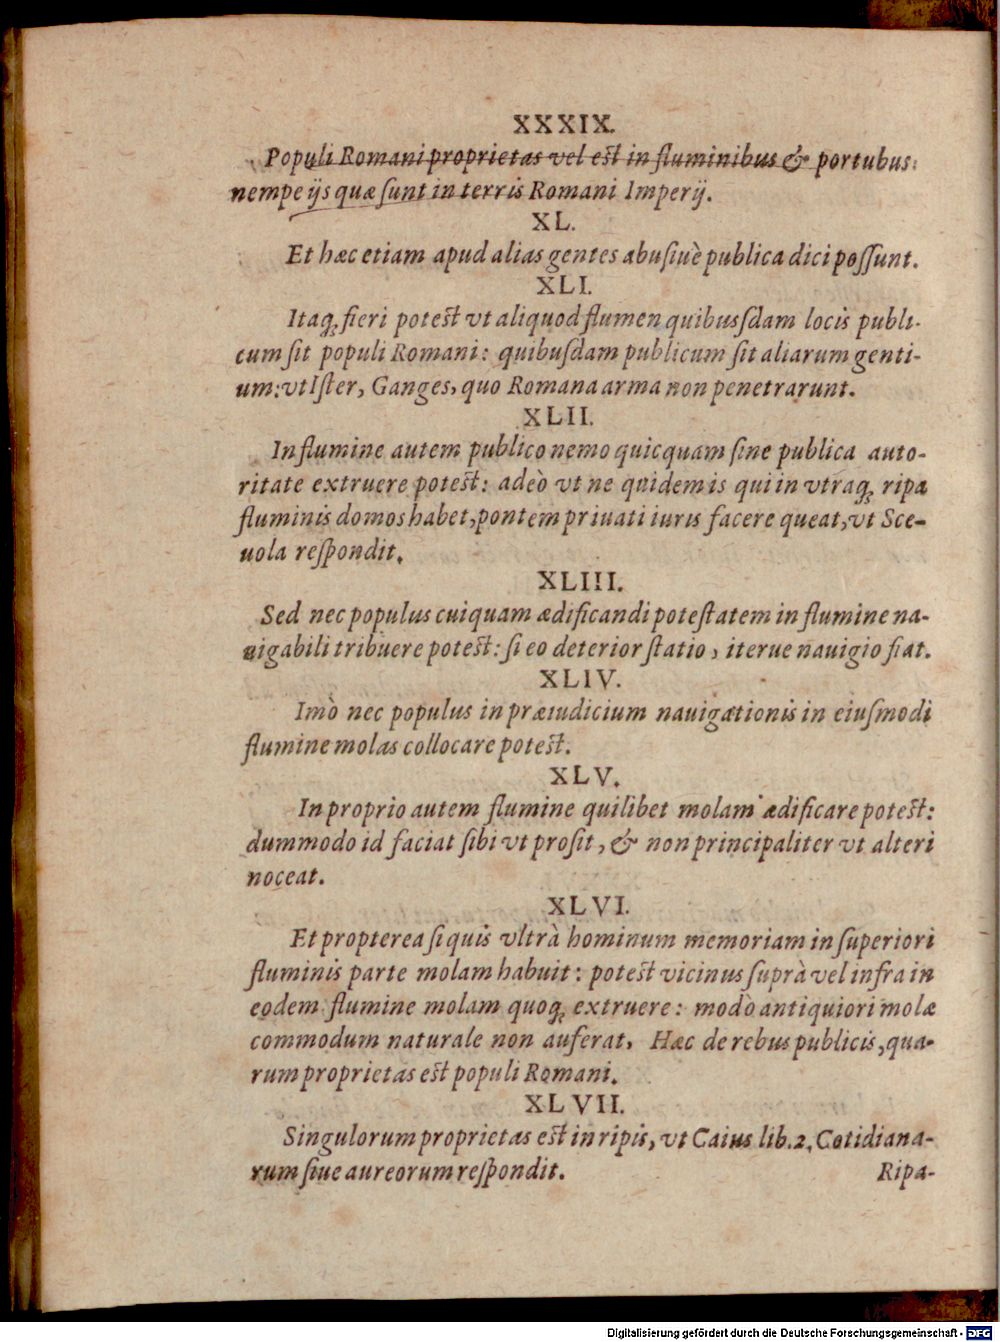 XXXIX.
Populi Romani proprietas vel est in fluminibus & portubus:
nempe ijs quæ ſunt in terris Romani Imperij.
XL.
Et hæc etiam apud alias gentes abuſiuè publica dici poſſunt.
XLI.
Itaq; fieri potest vt aliquod flumen quibusſdam locis publi-
cum ſit populi Romani: quibuſdam publicum ſit aliarum genti-
um: vt Iſter, Ganges, quo Romana arma non penetrarunt.
XLII.
In flumine autem publico nemo quicquam ſine publica auto-
ritate extruere potest: adeò vt ne quidem is qui in vtraq; ripa
fluminis domos habet, pontem priuati iuris facere queat, vt Sce-
uola reſpondit.
XLIII.
Sed nec populus cuiquam ædificandi poteſtatem in flumine na-
uigabili tribuere potest: ſi eo deterior ſtatio, iterue nauigio fiat.
XLIV.
Imò nec populus in præiudicium nauigationis in eiuſmodi
flumine molas collocare potest.
XLV.
In proprio autem flumine quilibet molam ædificare potest:
dummodo id faciat ſibi vt proſit, & non principaliter vt alteri
noceat.
XLVI.
Et propterea ſi quis vltrà hominum memoriam in ſuperiori
fluminis parte molam habuit: potest vicinus ſuprà vel infra in
eodem flumine molam quoq; extruere: modò antiquiori molæ
commodum naturale non auferat. Hæc de rebus publicis, qua-
rum proprietas est populi Romani.
XLVII.
Singulorum proprietas est in ripis, vt Caius lib. 2. Cotidiana-
rum ſiue aureorum reſpondit.
Ripa-
Digitalisierung gefördert durch die Deutsche Forschungsgemeinschaft - DFG